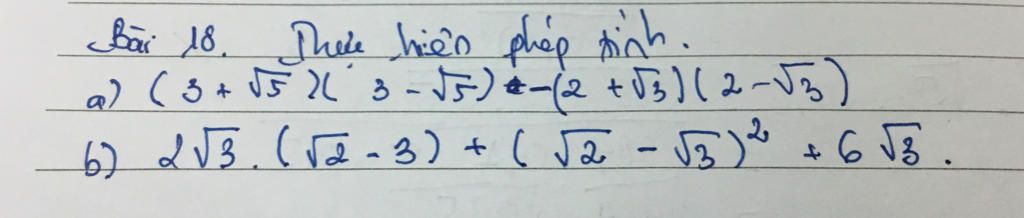 Bài 18. Thực hiện phép tính.
a) (3 + √5)(3 - √5) - (2 + √3)(2 - √3)
b) 2√3 . (√2 - 3) + (√2 - √3)² + 6√3 .